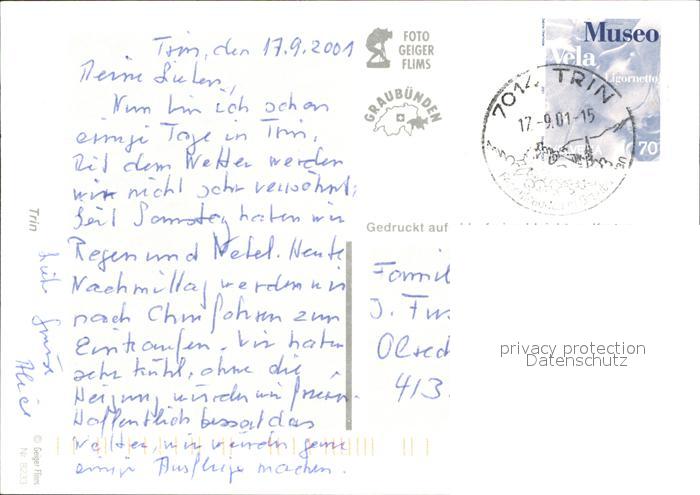 Trin, den 17.9.2001
Meine Lieben,
Nun bin ich schon
einige Tage in Trin.
Mit dem Wetter werden
wir nicht sehr verwöhnt;
Seit Samstag haben wir
Regen und Nebel. Heute
Nachmittag werden wir
nach Chur fahren zum
Einkaufen. Wir haben
sehr kühl, ohne die
Heizung würden wir frieren.
Hoffentlich bessert das
Wetter, wir würden gerne
einige Ausflüge machen.
Liebe Grüsse
Alice
Trin
© Geiger Flims
Nr. 8233
FOTO
GEIGER
FLIMS
GRAUBÜNDEN
Museo
Vela
Ligornetto
70
7014 TRIN
17.-9.01-15
Gedruckt auf
Famil
J.
Olsed
413
privacy protection
Datenschutz